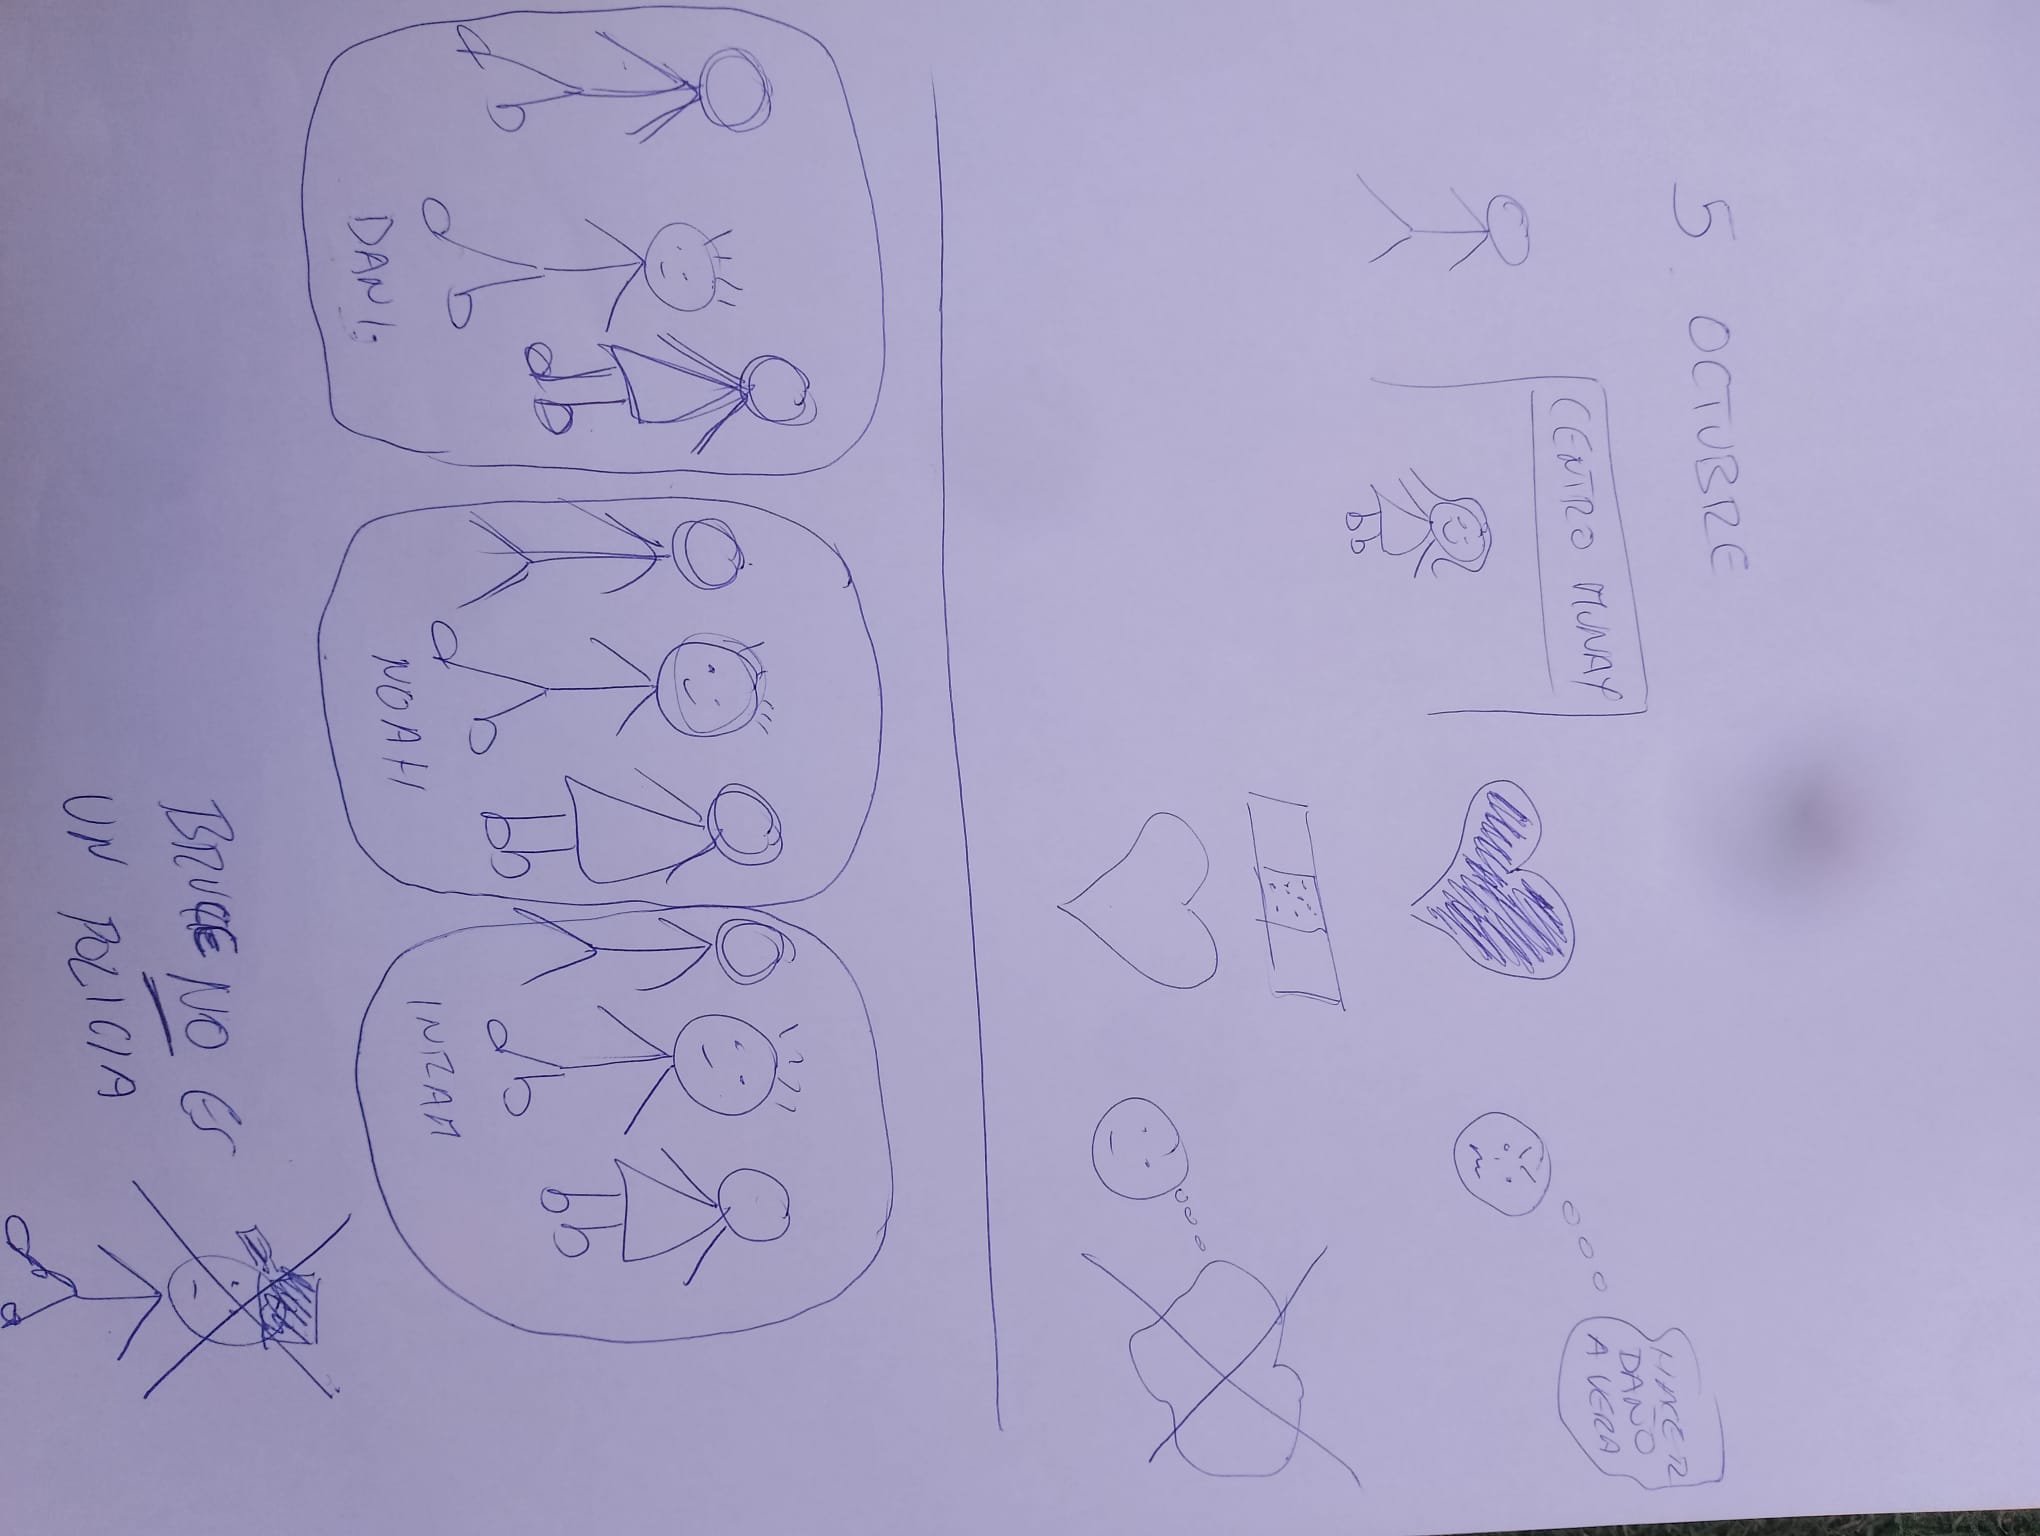 5 OCTUBRE
CENTRO MUNAY
HACER
DAÑO
A VERA
DANI
NOAH
BRUCE NO ES
UN POLICIA